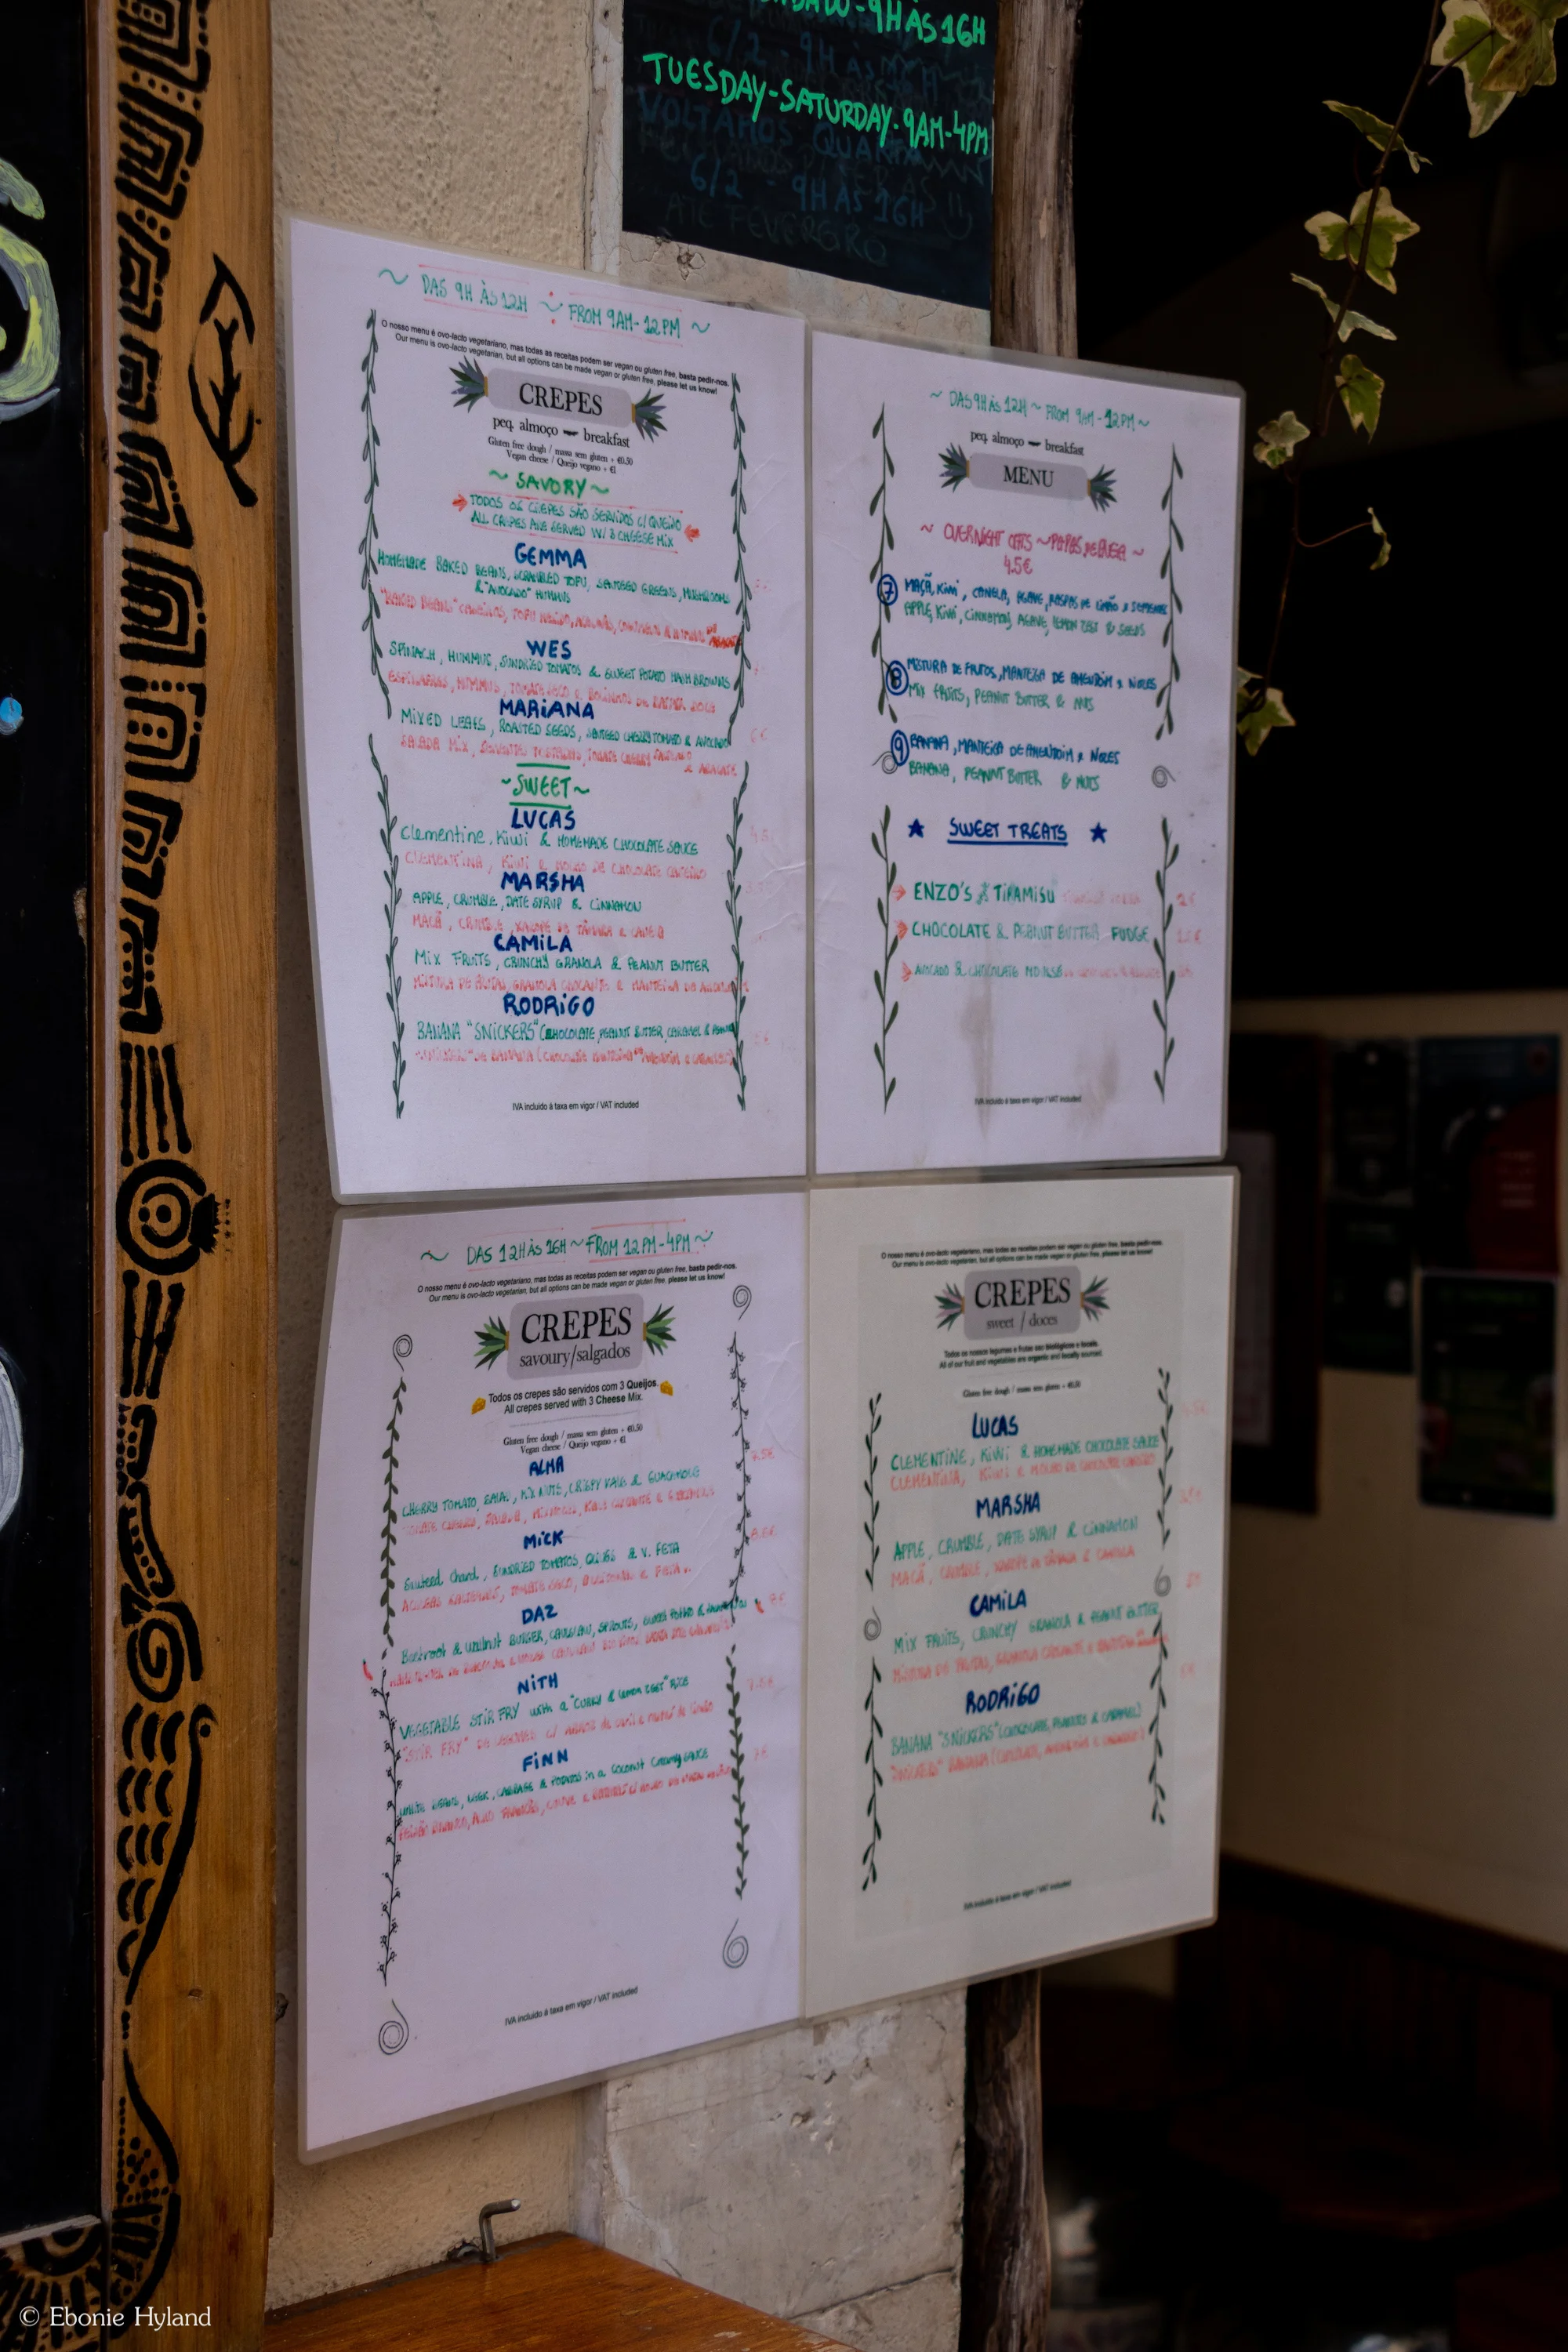 9H ÀS 16H
TUESDAY-SATURDAY-9AM-4PM
VOLTAMOS QUARTA
6/2 - 9H ÀS 16H
ATÉ FEVEREIRO
~ DAS 9H ÀS 12H ~ FROM 9AM-12PM ~
O nosso menu é ovo-lacto vegetariano, mas todas as receitas podem ser vegan ou gluten free, basta pedir-nos.
Our menu is ovo-lacto vegetarian, but all options can be made vegan or gluten free, please let us know!
CREPES
peq. almoço breakfast
Gluten free dough / massa sem gluten + €0.50
Vegan cheese / Queijo vegano + €1
~ SAVORY ~
TODOS OS CREPES SÃO SERVIDOS C/ QUEIJO
ALL CREPES ARE SERVED W/ 3 CHEESE MIX
GEMMA
HOMEMADE BAKED BEANS, SCRAMBLED TOFU, SAUTEED GREENS, MUSHROOMS
& "AVOCADO" HUMMUS
WES
SPINACH, HUMMUS, SUNDRIED TOMATOS & SWEET POTATO HASH BROWNS
ESPINAFRES, HUMMUS, TOMATE SECO E BOLINHOS DE BATATA DOCE
MARIANA
MIXED LEAFS, ROASTED SEEDS, SAUTEED CHERRY TOMATO & AVOCADO
SALADA MIX, SEMENTES TOSTADAS, TOMATE CHERRY SALTEADO
& ABACATE
~SWEET~
LUCAS
Clementine, Kiwi & HOMEMADE CHOCOLATE SAUCE
CLEMENTINA, KIWI E MOLHO DE CHOCOLATE CASEIRO
MARSHA
APPLE, CRUMBLE, DATE SYRUP & CINNAMON
MAÇÃ, CRUMBLE, XAROPE DE TÂMARA & CANELA
CAMILA
MIX FRUITS, CRUNCHY GRANOLA & PEANUT BUTTER
MISTURA DE FRUTAS, GRANOLA CROCANTE E MANTEIGA DE AMENDOIM
RODRIGO
BANANA "SNICKERS" (CHOCOLATE, PEANUT BUTTER, CARAMEL &
IVA incluido à taxa em vigor / VAT included
~ DAS 9H ÀS 12H ~ FROM 9AM-12PM ~
peq. almoço breakfast
MENU
~ OVERNIGHT OATS ~ PAPAS DE AVEIA ~
4.5€
7 MAÇÃ, KIWI, CANELA, AGAVE, RASPAS DE LIMÃO E SEMENTES
APPLE, KIWI, CINNAMON, AGAVE, LEMON ZEST & SEEDS
8 MISTURA DE FRUTOS, MANTEIGA DE AMENDOIM E NOZES
MIX FRUITS, PEANUT BUTTER & NUTS
9 BANANA, MANTEIGA DE AMENDOIM E NOZES
BANANA, PEANUT BUTTER & NUTS
★ SWEET TREATS ★
ENZO'S TIRAMISU
CHOCOLATE & PEANUT BUTTER FUDGE
AVOCADO & CHOCOLATE MOUSSE
IVA incluido à taxa em vigor / VAT included
~ DAS 12H ÀS 16H ~ FROM 12PM-4PM ~
O nosso menu é ovo-lacto vegetariano, mas todas as receitas podem ser vegan ou gluten free, basta pedir-nos.
Our menu is ovo-lacto vegetarian, but all options can be made vegan or gluten free, please let us know!
CREPES
savoury/salgados
Todos os crepes são servidos com 3 Queijos.
All crepes served with 3 Cheese Mix.
Gluten free dough / massa sem gluten + €0.50
Vegan cheese / Queijo vegano + €1
ALMA
CHERRY TOMATO, SALAD, MIX NUTS, CRISPY KALE & GUACAMOLE
MICK
Sauteed Chard, SUNDRIED TOMATOS, OLIVES & V. FETA
DAZ
Beetroot & Walnut BURGER,
NITH
VEGETABLE STIR FRY with a "CURRY & lemon ZEST" RICE
FINN
WHITE BEANS, LEEK, CABBAGE & POTATOS in a Coconut Creamy SAUCE
IVA incluido à taxa em vigor / VAT included
O nosso menu é ovo-lacto vegetariano, mas todas as receitas podem ser vegan ou gluten free, basta pedir-nos.
Our menu is ovo-lacto vegetarian, but all options can be made vegan or gluten free, please let us know!
CREPES
sweet / doces
Todos os nossos legumes e frutas são biológicos e locais.
All of our fruit and vegetables are organic and locally sourced.
Gluten free dough / massa sem gluten + €0.50
LUCAS
CLEMENTINE, KIWI & HOMEMADE CHOCOLATE SAUCE
CLEMENTINA, KIWI E MOLHO DE CHOCOLATE CASEIRO
MARSHA
APPLE, CRUMBLE, DATE SYRUP & CINNAMON
MAÇÃ, CRUMBLE, XAROPE DE TÂMARA E CANELA
CAMILA
MIX FRUITS, CRUNCHY GRANOLA & PEANUT BUTTER
MISTURA DE FRUTAS, GRANOLA CROCANTE E
RODRIGO
BANANA "SNICKERS" (CHOCOLATE, PEANUTS & CARAMEL)
IVA incluido à taxa em vigor / VAT included
© Ebonie Hyland